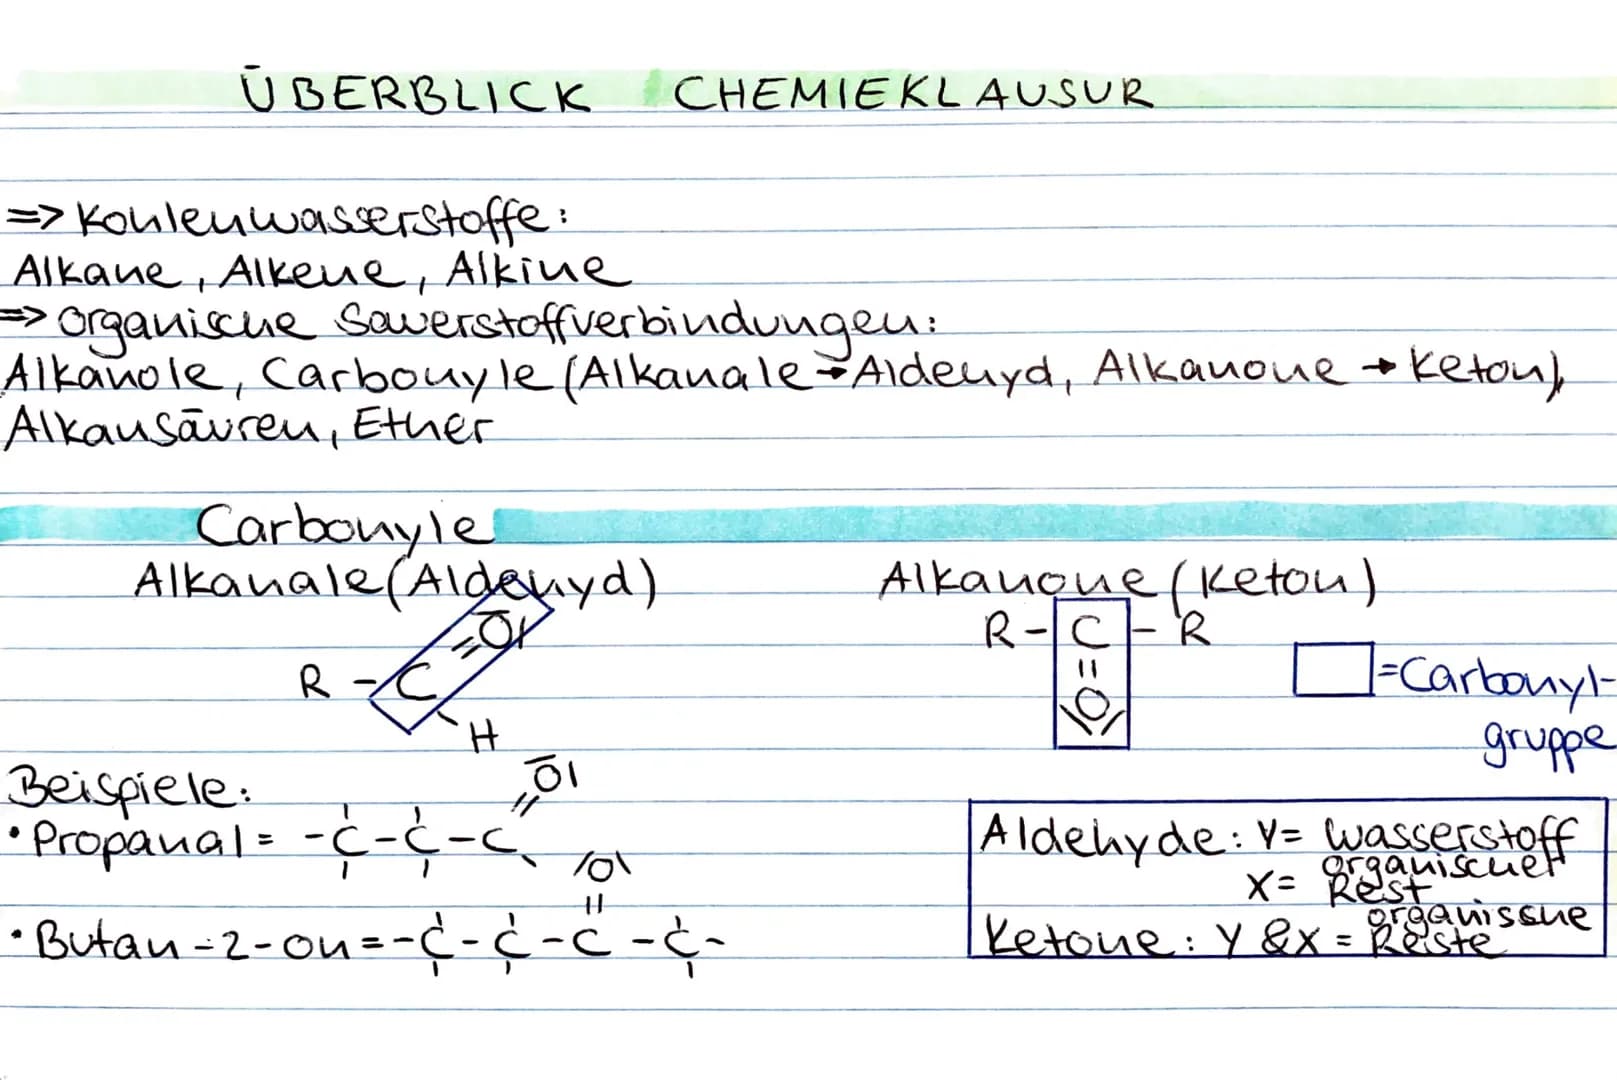 ÜBERBLICK CHEMIEKLAUSUR
=> Kohlenwasserstoffe:
Alkane, Alkene, Alkine
=> organische Sauerstoffverbindungen:
Alkanole, Carbonyle (Alkanale → Aldehyd, Alkanone → Keton),
Alkansäuren, Ether
Carbonyle
Alkanale (Aldehyd)
R - C =O| H
Alkanone (Keton)
R - C - R
=
O
□ = Carbonyl-
gruppe
Beispiele:
• Propanal = -C-C-C =O|
• Butan-2-on = -C-C-C-C-
|O|
=
Aldehyde: Y= Wasserstoff
X= organischer Rest
Ketone: Y & X = organissche Reste